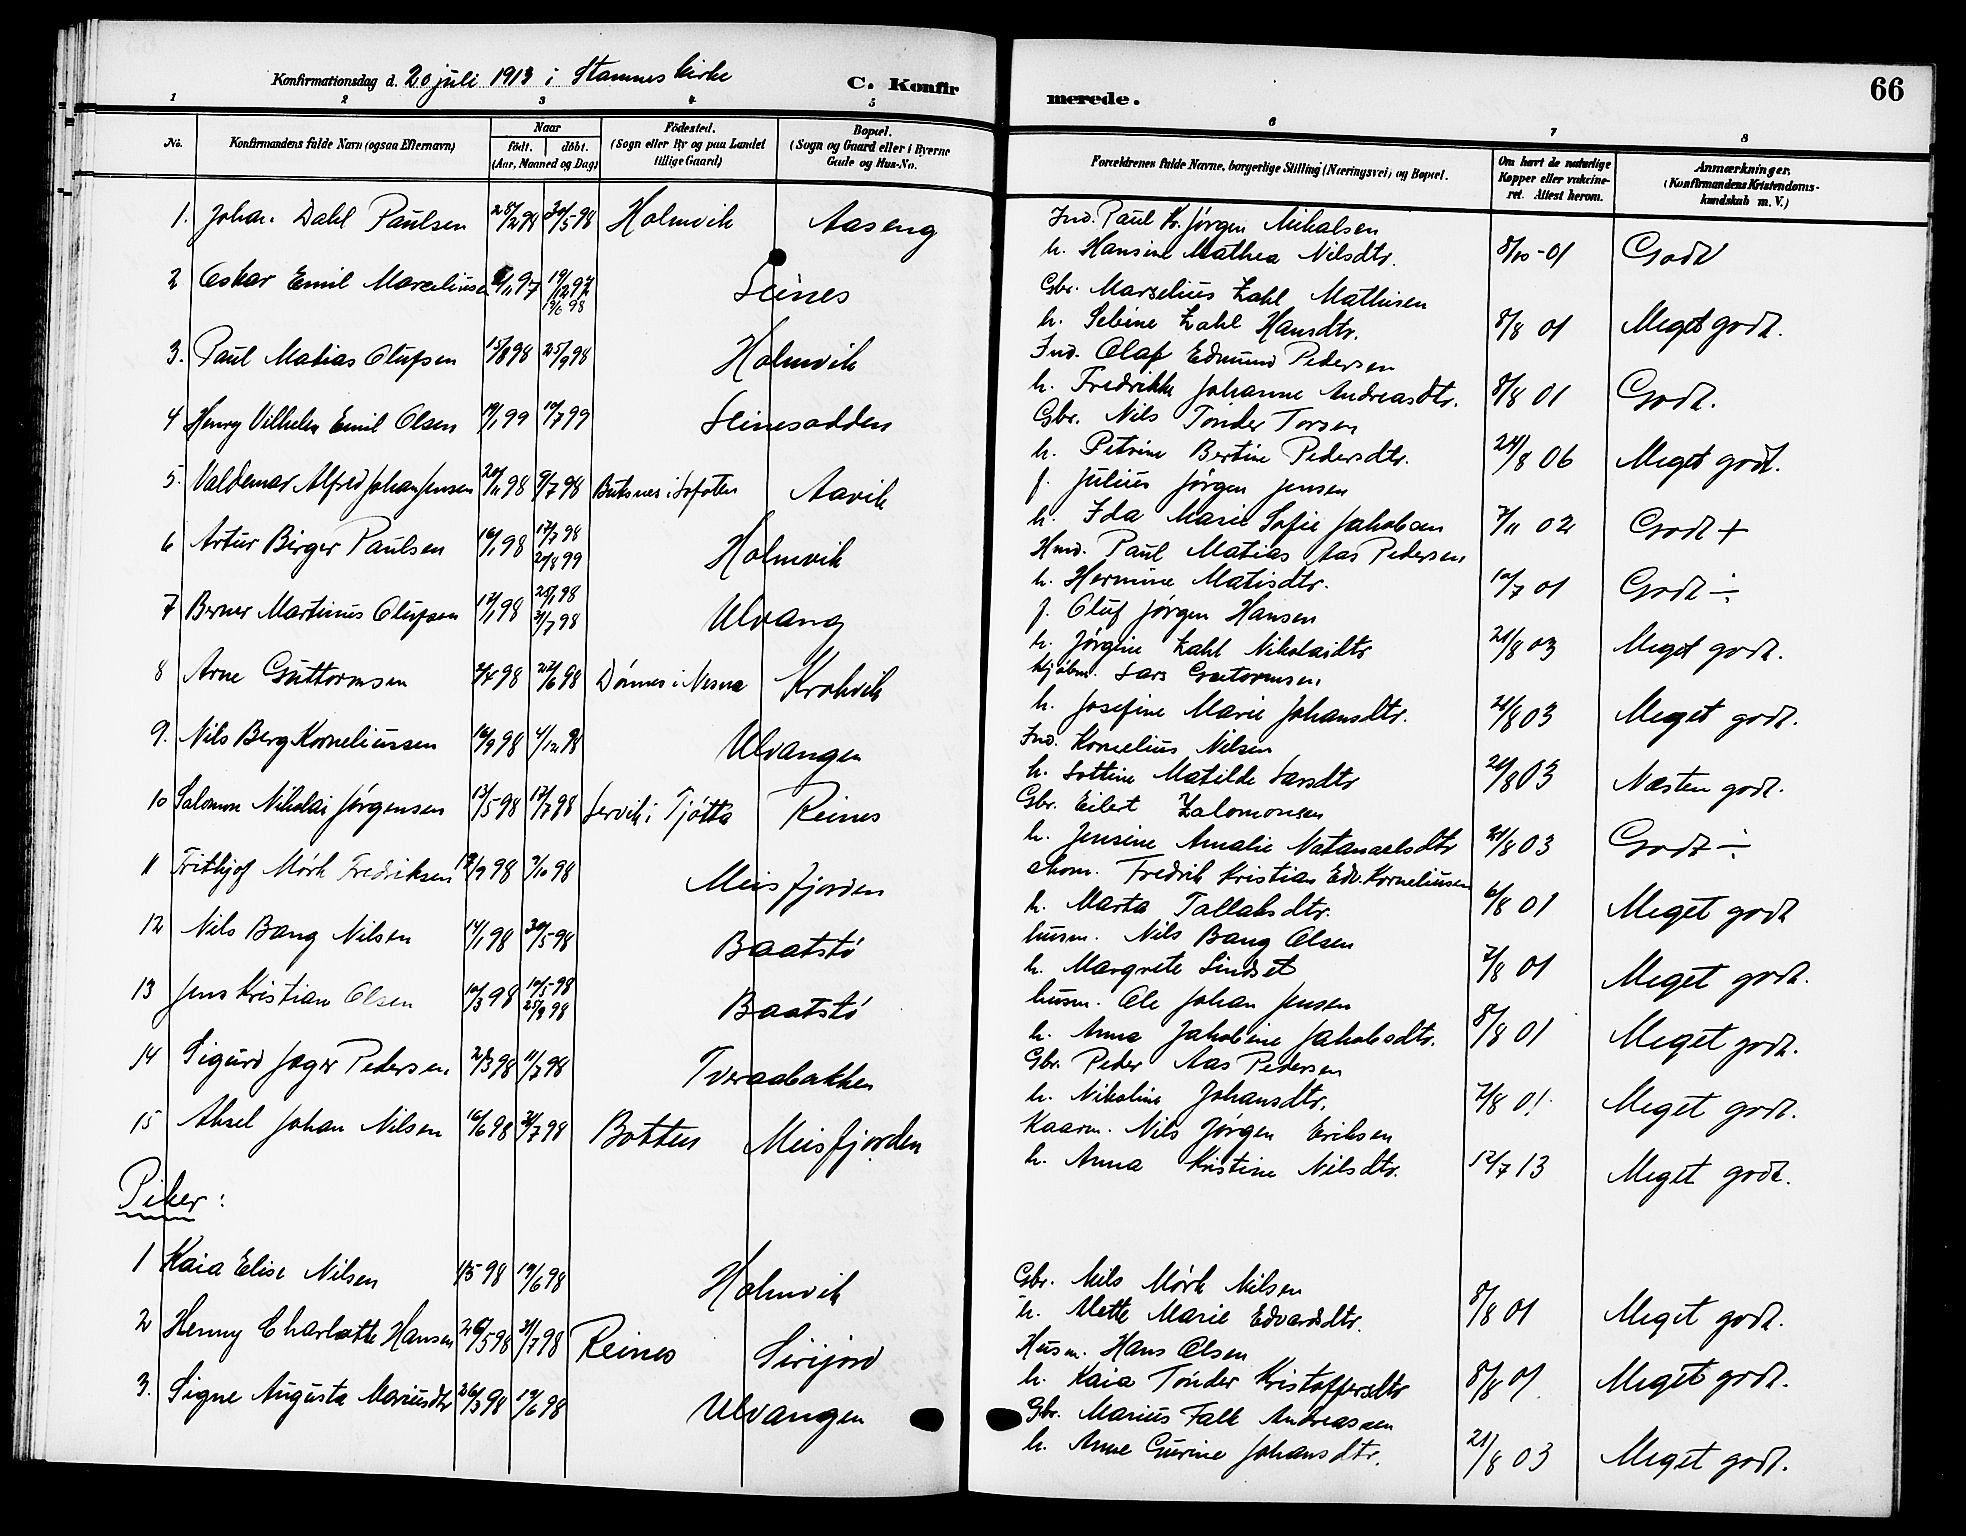 Konfirmationsdag d. 20 juli 1913 i Stamnes kirke
C. Konfir
merede.
66
1 2 3 4 5 6 7 8
No.
Konfirmandens fulde Navn (ogsaa Efternavn)
Naar
födt. döbt.
(Aar, Maaned og Dag)
Födested.
(Sogn eller By og paa Landet
tillige Gaard)
Bopæl.
(Sogn og Gaard eller i Byerne
Gade og Hus-No.
Forældrenes fulde Navne, borgerlige Stilling (Næringsvei) og Bopæl.
Om havt de naturlige
Kopper eller vakcine-
ret. Attest herom.
Anmærkninger.
(Konfirmandens Kristendoms-
kundskab m. V.)
1. Johan Dahl Paulsen 28/2 98 30/5 98 Holmvik Aaseng
Ind. Paul Kr. Jørgen Mikalsen
h. Hansine Mathea Nilsdtr. 8/10 - 01 Godt
2 Oskar Emil Marceliussen /11 97 19/12 97
12/6 98
Seines
Gbr. Marselius Zahl Mathisen
h. Sebine Zahl Hansdtr. 8/8 01 Meget godt.
3. Paul Matias Olufsen 15/8 98 25/9 98 Holmvik
Ind. Olaf Edmund Pedersen
h. Fredrikke Johanne Andreasdtr. 8/8 01 Godt.
4 Henry Vilhelm Emil Olsen 19/1 99 10/7 99 Seinesodden
Gbr. Nils Tønder Torsen
h. Petrine Bertine Pedersdtr. 24/8 06 Meget godt.
5. Valdemar Alfred Johan Jensen 20/11 98 9/7 98 Buksnes i Lofoten Aavik
f. Julius Jørgen Jensen
h. Ida Marie Sofie Jakobsen 7/11 02 Godt +
6 Artur Birger Paulsen 16/1 98 17/7 98
21/8 99
Holmvik
Hmd. Paul Matias Aas Pedersen
h. Hermine Matisdtr. 10/7 01 Godt ÷
7 Berner Martinus Olufsen 12/1 98 25/1 98
31/7 98
Ulvang
f. Oluf Jørgen Hansen
h. Jørgine Zahl Nikolaidtr 21/8 03 Meget godt.
8 Arne Guttormsen 2/4 98 22/6 98 Dønnes i Nesna Krokvik
Kjøbm. Lars Guttormsen
h. Josefine Marie Johansdtr. 21/8 03 Meget godt.
9. Nils Berg Korneliussen 16/9 98 4/12 98 Ulvangen
Ind. Kornelius Nilsen
h. Lottine Matilde Larsdtr 21/8 03 Næsten godt.
10 Salomon Nikolai Jørgensen 13/5 98 17/7 98 Lervik i Tjøtta Reines
Gbr. Eilert Zalomonsen
h. Jensine Amalie Natanaelsdtr 21/8 03 Godt ÷
11 Frithjof Mørk Fredriksen 17/7 98 2/10 98 Meisfjorden
skom. Fredrik Kristian Edv. Korneliussen
h. Marta Tallaksdtr. 6/8 01 Meget godt
12 Nils Bang Nilsen 14/1 98 30/5 - 98 Baatstø
husm. Nils Bang Olsen
h. Margrete Lindset 7/8 01 Meget godt.
13 Jens Kristian Olsen 10/3 98 10/5 - 98
25/9 98
Baatstø
husm. Ole Johan Jensen
h. Anna Jakobine Jakobsdtr. 8/8 01 Meget godt.
14 Sigurd Jæger Pedersen 2/3 98 17/7 98 Tveraabakken
Gbr. Peder Aas Pedersen
h. Nikoline Johansdtr. 7/8 01. Meget godt.
15 Aksel Johan Nilsen 16/6 98 31/7 98 Botten Meisfjorden
Kaarm. Nils Jørgen Eriksen
h. Anna Kristine Nilsdtr. 12/7 13 Meget godt.
Piker:
1 Kaia Elise Nilsen 1/5 98 19/6 98 Holmvik
Gbr. Nils Mørk Nilsen
h. Mette Marie Edvardsdtr. 8/8 01 Meget godt.
2 Henny Charlotte Hansen 26/5 98 31/7 98 Reines Sirijord
Husm. Hans Olsen
h. Kaia Tønder Kristoffersdtr 8/8 01. Meget godt.
3. Signe Augusta Mariusdtr 26/3 98 12/6 98 Ulvangen
Gbr. Marius Falk Andreassen
h. Anne Guerine Johansdtr. 21/8 03 Meget godt.